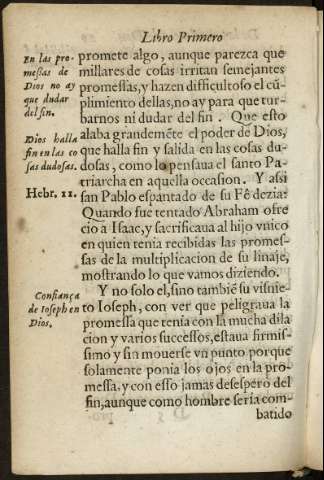 Libro Primero
En las pro-
meſſas de
Dios no ay
que dudar
del fin.
Dios halla
fin en las co
ſas dudoſas.
Hebr. 11.
Confiança
de Ioſeph en
Dios.
promete algo, aunque parezca que
millares de coſas irritan ſemejantes
promeſſas, y hazen difficultoſo el cũ-
plimiento dellas, no ay para que tur-
barnos ni dudar del fin. Que eſto
alaba grandemẽte el poder de Dios,
que halla fin y ſalida en las coſas du-
doſas, como lo penſaua el santo Pa-
triarcha en aquella occaſion. Y aſſi
ſan Pablo eſpantado de ſu Fê dezia:
Quando fue tentado Abraham ofre
ciò a Iſaac, y ſacrificaua al hijo vnico
en quien tenia recibidas las promeſ-
ſas de la multiplicacion de ſu linaje,
moſtrando lo que vamos diziendo.
Y no ſolo el, ſino tambiẽ ſu viſnie-
to Ioſeph, con ver que peligraua la
promeſſa que tenia con la mucha dila
cion y varios ſucceſſos, eſtaua firmiſ-
ſimo y ſin mouerſe vn punto porque
ſolamente ponia los ojos en la pro-
meſſa, y con eſſo jamas deſeſperò del
fin, aunque como hombre ſeria com-
batido